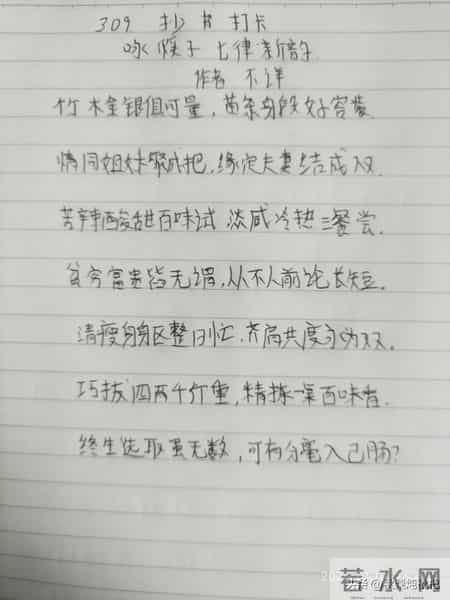 309 抄书打卡
咏筷子 七律新韵
作者 不详
竹木金银值可量，苗条身段好容装
情同姐妹聚成把，缘定夫妻结成双.
苦辣酸甜百味试 淡咸冷热三餐尝.
贫穷富贵皆无谓，从不人前论长短.
清瘦身躯整日忙，齐肩共度
巧拨四两千斤重，精拣一桌百味香.
终生选取虽无数，可有分毫入己肠？
若水网